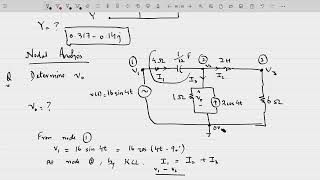 Y₀ = ?
Y
0.317 - 0.14j
Nodal Analysis
Q Determine v₀
v₀ = ?
① 4Ω 1/12 F ② 2H
V₁ I₁ V₂ I₂ V₃
I₃
v(t) = 16 sin 4t
1Ω + v₀ - 2 cos 4t 6Ω
0V
From node ①
V₁ = 16 sin 4t = 16 cos (4t - 90°)
At node ②, by KCL I₁ = I₂ + I₃
V₁ - V₂